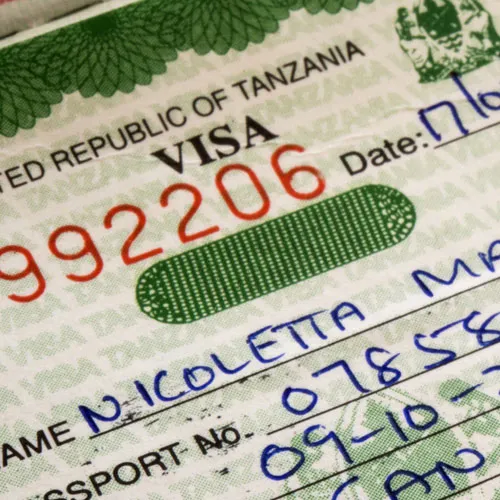 TED REPUBLIC OF TANZANIA
VISA
992206 Date: 17/0
NAME NICOLETTA MA
SSPORT No. 07858
09-10-
CAN